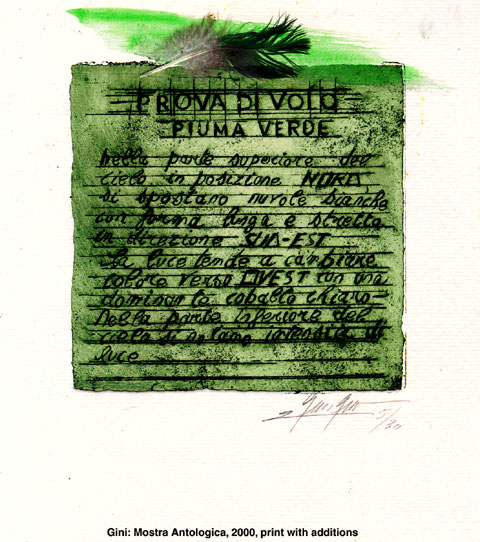 PROVA DI VOLO
PIUMA VERDE
Nella parte superiore del
cielo in posizione NORD
si spostano nuvole bianche
con forma lunga e stretta
in direzione SUD-EST
La luce tende a cambiare
colore verso OVEST con una
dominante cobalto chiaro
Nella parte inferiore del
cielo si notano intensità di
luce
5/30
Gini: Mostra Antologica, 2000, print with additions